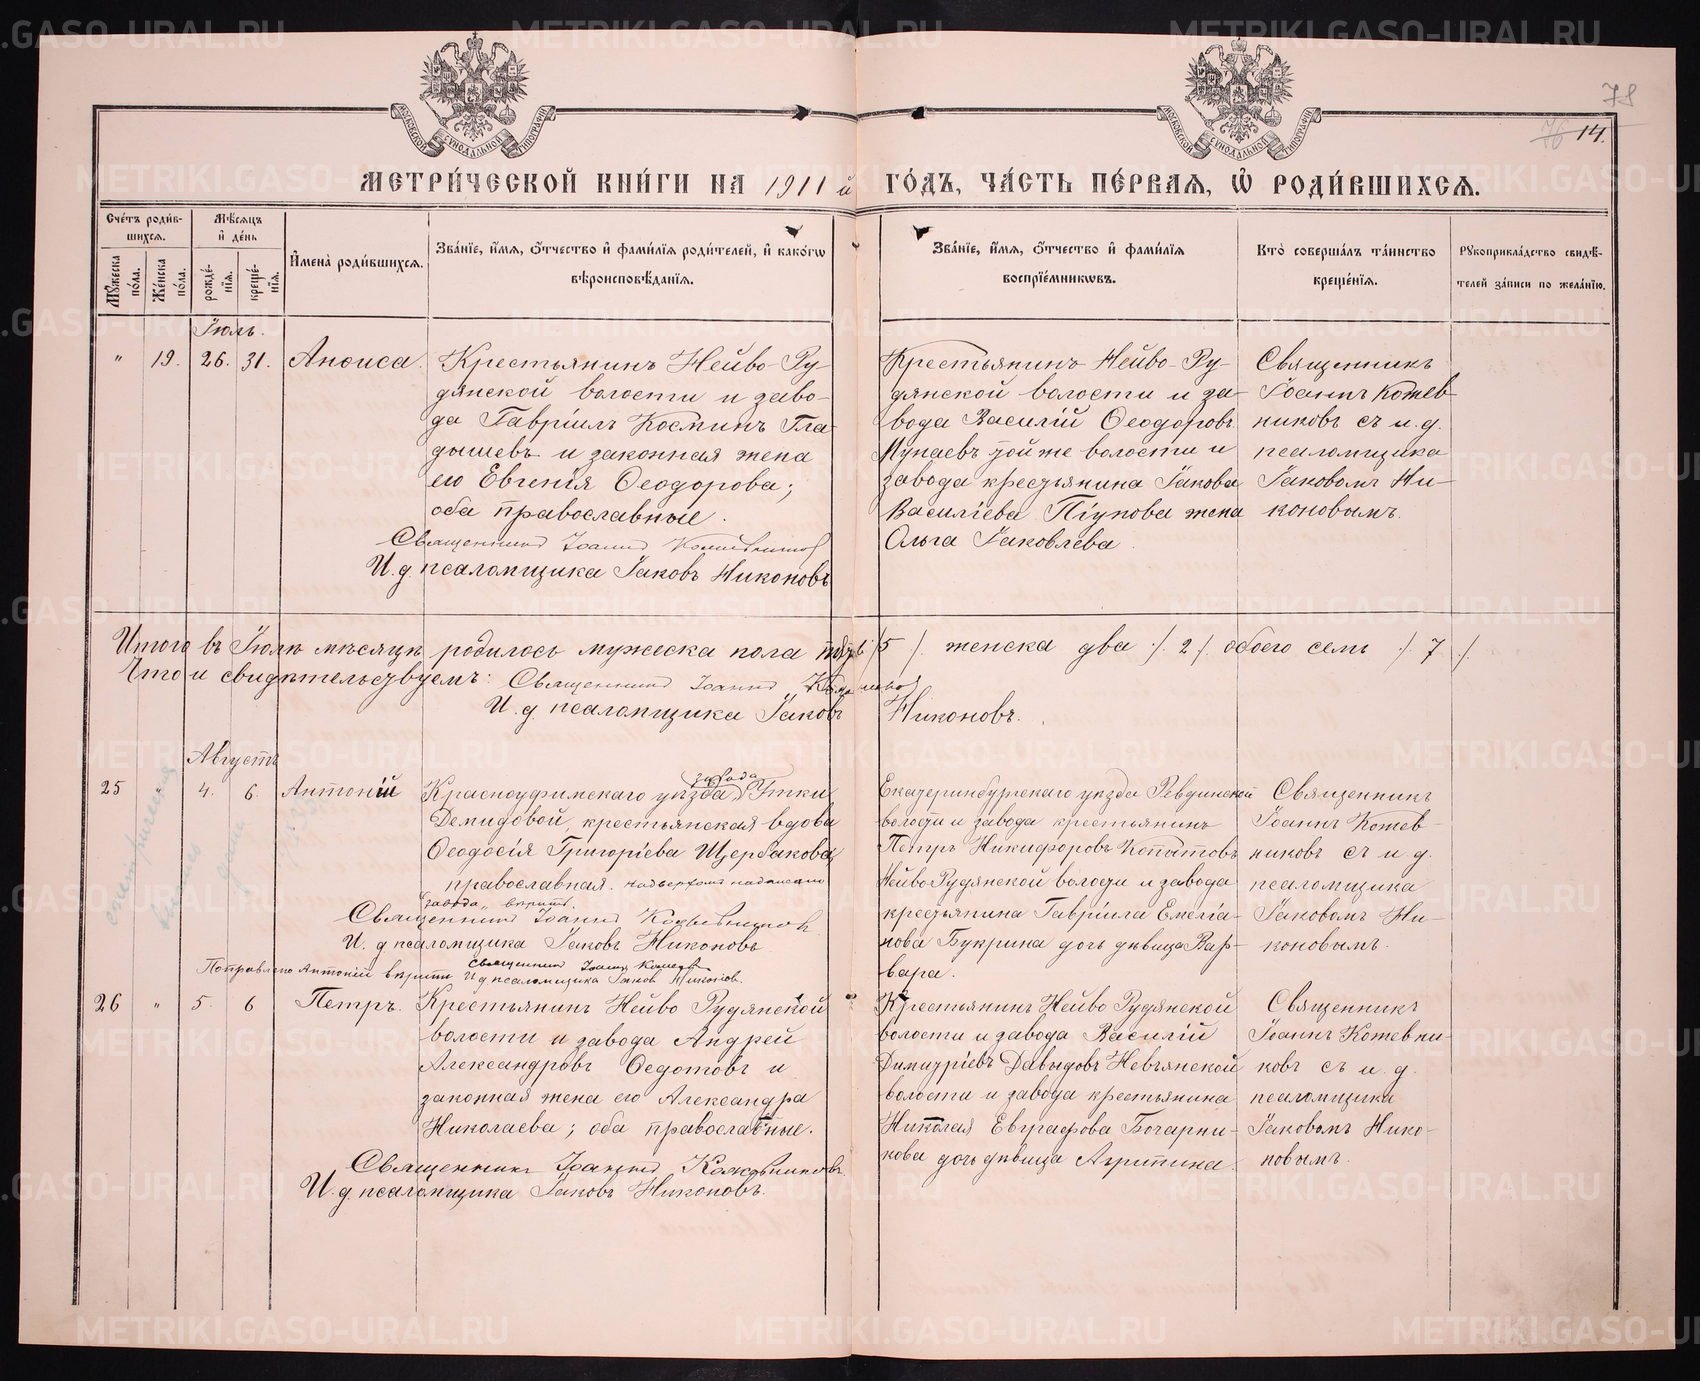 METRIKI.GASO-URAL.RU
78
76 14.
МОСКОВСКОЙ СѴНОДАЛЬНОЙ ТИПОГРАФІИ
МОСКОВСКОЙ СѴНОДАЛЬНОЙ ТИПОГРАФІИ
МЕТРИ́ЧЕСКОЙ КНИ́ГИ НА 1911 й ГО́ДЪ, ЧА́СТЬ ПЕ́РВАЯ, Ѽ РОДИ́ВШИХСЯ.
Сче́тъ роди́в-
шихся.
Му́жеска по́ла.
Же́нска по́ла.
Мѣ́сяцъ
и҆ де́нь
рожде́-
нїя.
креще́-
нїя.
И҆мена̀ роди́вшихся.
Зва́нїе, и҆́мя, ѻ҆́тчество и҆ фами́лїя роди́телей, и҆ како́гѡ
вѣроисповѣ́данїя.
Зва́нїе, и҆́мя, ѻ҆́тчество и҆ фами́лїя
воспрїе́мникѡвъ.
Кто̀ соверша́лъ та́инство
креще́нїя.
Рꙋкоприкла́дство свидѣ́-
телей за́писи по жела́нїю.
Іюль.
" 19. 26. 31. Анѳиса.
Крестьянинъ Нейво-Ру-
дянской волости и заво-
да Гавріилъ Косминъ Гла-
дышевъ и законная жена
его Евгенія Ѳеодорова;
оба православные.
Священникъ Іоаннъ Кожевниковъ
И. д. псаломщика Іаковъ Никоновъ
Крестьянинъ Нейво-Ру-
дянской волости и за-
вода Василій Ѳеодоровъ
Мунаевъ той же волости и
завода крестьянина Іакова
Василіева Піунова жена
Ольга Іаковлева.
Священникъ
Іоаннъ Кожев-
никовъ съ и. д.
псаломщика
Іаковомъ Ни-
коновымъ.
Итого въ Іюлѣ мѣсяцѣ родилось мужеска пола пять /5/. женска два /. 2/. обоего семь /. 7 /.
Что и свидѣтельствуемъ: Священникъ Іоаннъ Кожевниковъ
И. д. псаломщика Іаковъ Никоновъ.
Августъ
25 " 4. 6. Антоній
завода
Красноуфимскаго уѣзда, Утки
Демидовой, крестьянская вдова
Ѳеодосія Григоріева Щербакова,
православная. надверхомъ надписано
"завода" вѣрить.
Священникъ Іоаннъ Кожевниковъ
И. д псаломщика Іаковъ Никоновъ
Поправлено Антоній вѣрить Священникъ Іоаннъ Кожев
И д псаломщика Іаковъ Никоновъ.
Екатеринбургскаго уѣзда Ревдинской
волости и завода крестьянинъ
Петръ Никифоровъ Копытовъ
Нейво Рудянской волости и завода
крестьянина Гавріила Емеліа-
нова Букрина дочь дѣвица Вар-
вара.
Священникъ
Іоаннъ Кожев-
никовъ съ и д.
псаломщика
Іаковомъ Ни-
коновымъ.
26 " 5. 6 Петръ.
Крестьянинъ Нейво Рудянской
волости и завода Андрей
Александровъ Ѳедотовъ и
законная жена его Александра
Николаева; оба православные.
Священникъ Іоаннъ Кожевниковъ
И. д. псаломщика Іаковъ Никоновъ.
Крестьянинъ Нейво Рудянской
волости и завода Василій
Димитріевъ Давыдовъ Невьянской
волости и завода крестьянина
Николая Евграфова Бочарни-
кова дочь дѣвица Агрипина.
Священникъ
Іоаннъ Кожевни-
ковъ съ и д.
псаломщика
Іаковомъ Нико-
новымъ.